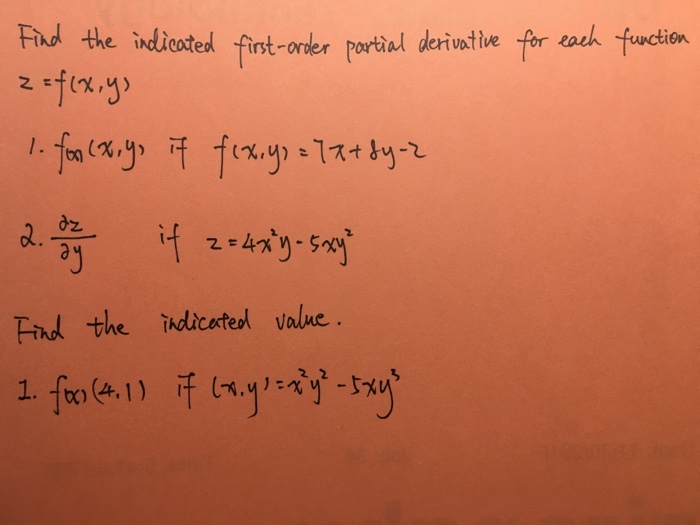 Find the indicated first-order partial derivative for each function
z = f(x,y)
1. f(x) (x,y) if f(x,y) = 7x + 8y - 2
2. ∂z/∂y if z = 4x²y - 5xy²
Find the indicated value.
1. f(x) (4,1) if (x,y) = x²y² - 5xy³